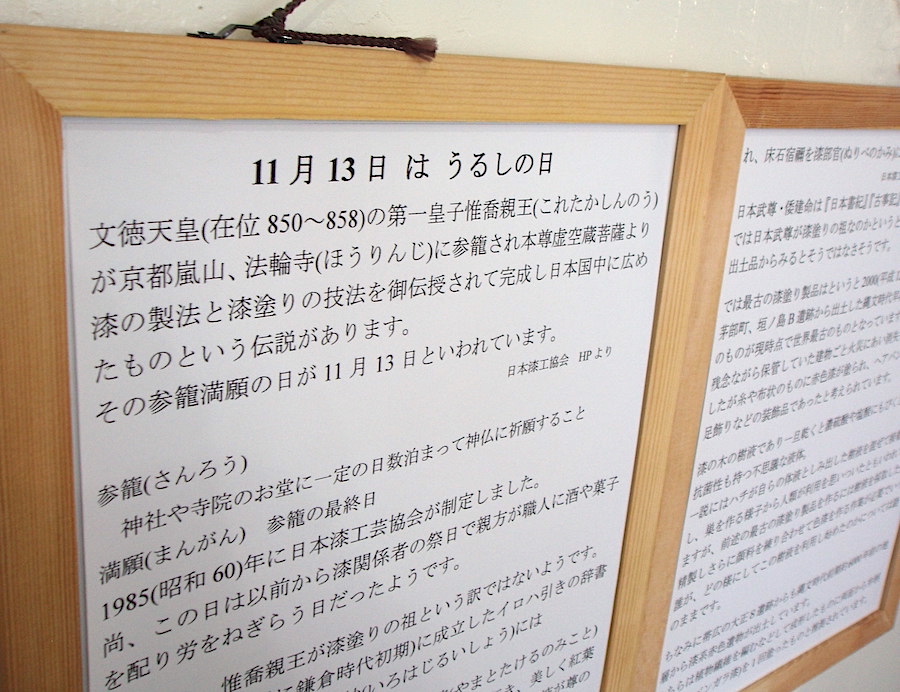 11月13日 は うるしの日
文徳天皇(在位 850〜858)の第一皇子惟喬親王(これたかしんのう)
が京都嵐山、法輪寺(ほうりんじ)に参籠され本尊虚空蔵菩薩より
漆の製法と漆塗りの技法を御伝授されて完成し日本国中に広め
たものという伝説があります。
その参籠満願の日が 11月13日といわれています。
日本漆工協会 HPより
参籠(さんろう)
神社や寺院のお堂に一定の日数泊まって神仏に祈願すること
満願(まんがん) 参籠の最終日
1985(昭和60)年に日本漆工芸協会が制定しました。
尚、この日は以前から漆関係者の祭日で親方が職人に酒や菓子
を配り労をねぎらう日だったようです。
惟喬親王が漆塗りの祖という訳ではないようです。
に鎌倉時代初期)に成立したイロハ引きの辞書
(いろはじるいしょう)には
(やまとたけるのみこと)
き、美しく紅葉
れ、床石宿禰を漆部官(ぬりべのかみ)に
日本武尊・倭建命は『日本書紀』『古事記』
では日本武尊が漆塗りの祖なのかというと
出土品からみるとそうではなさそうです。
では最古の漆塗り製品はというと 2000(平成1
茅部町、垣ノ島B遺跡から出土した縄文時代早
のものが現時点で世界最古のものとなっています
残念ながら保管していた建物ごと火災にあい消失
したが糸や布状のものに赤色漆が塗られ、ヘアバン
足飾りなどの装飾品であったと考えられています。
漆の木の樹液であり一旦乾くと濃硫酸や塩酸にもびく
抗菌性も持つ不思議な液体。
一説にはハチが自らの体液としみ出した樹液を混ぜて
し、巣を作る様子から人類が利用を思いついたとも
ますが、前述の最古の漆塗り製品を作るには樹液を採取し
精製しさらに顔料を練り合わせて色漆を作る作業が必要
誰が、どの様にしてこの樹液を利用し始めたのかについては謎
のままです。
ちなみに帯広の大正8遺跡からも縄文時代